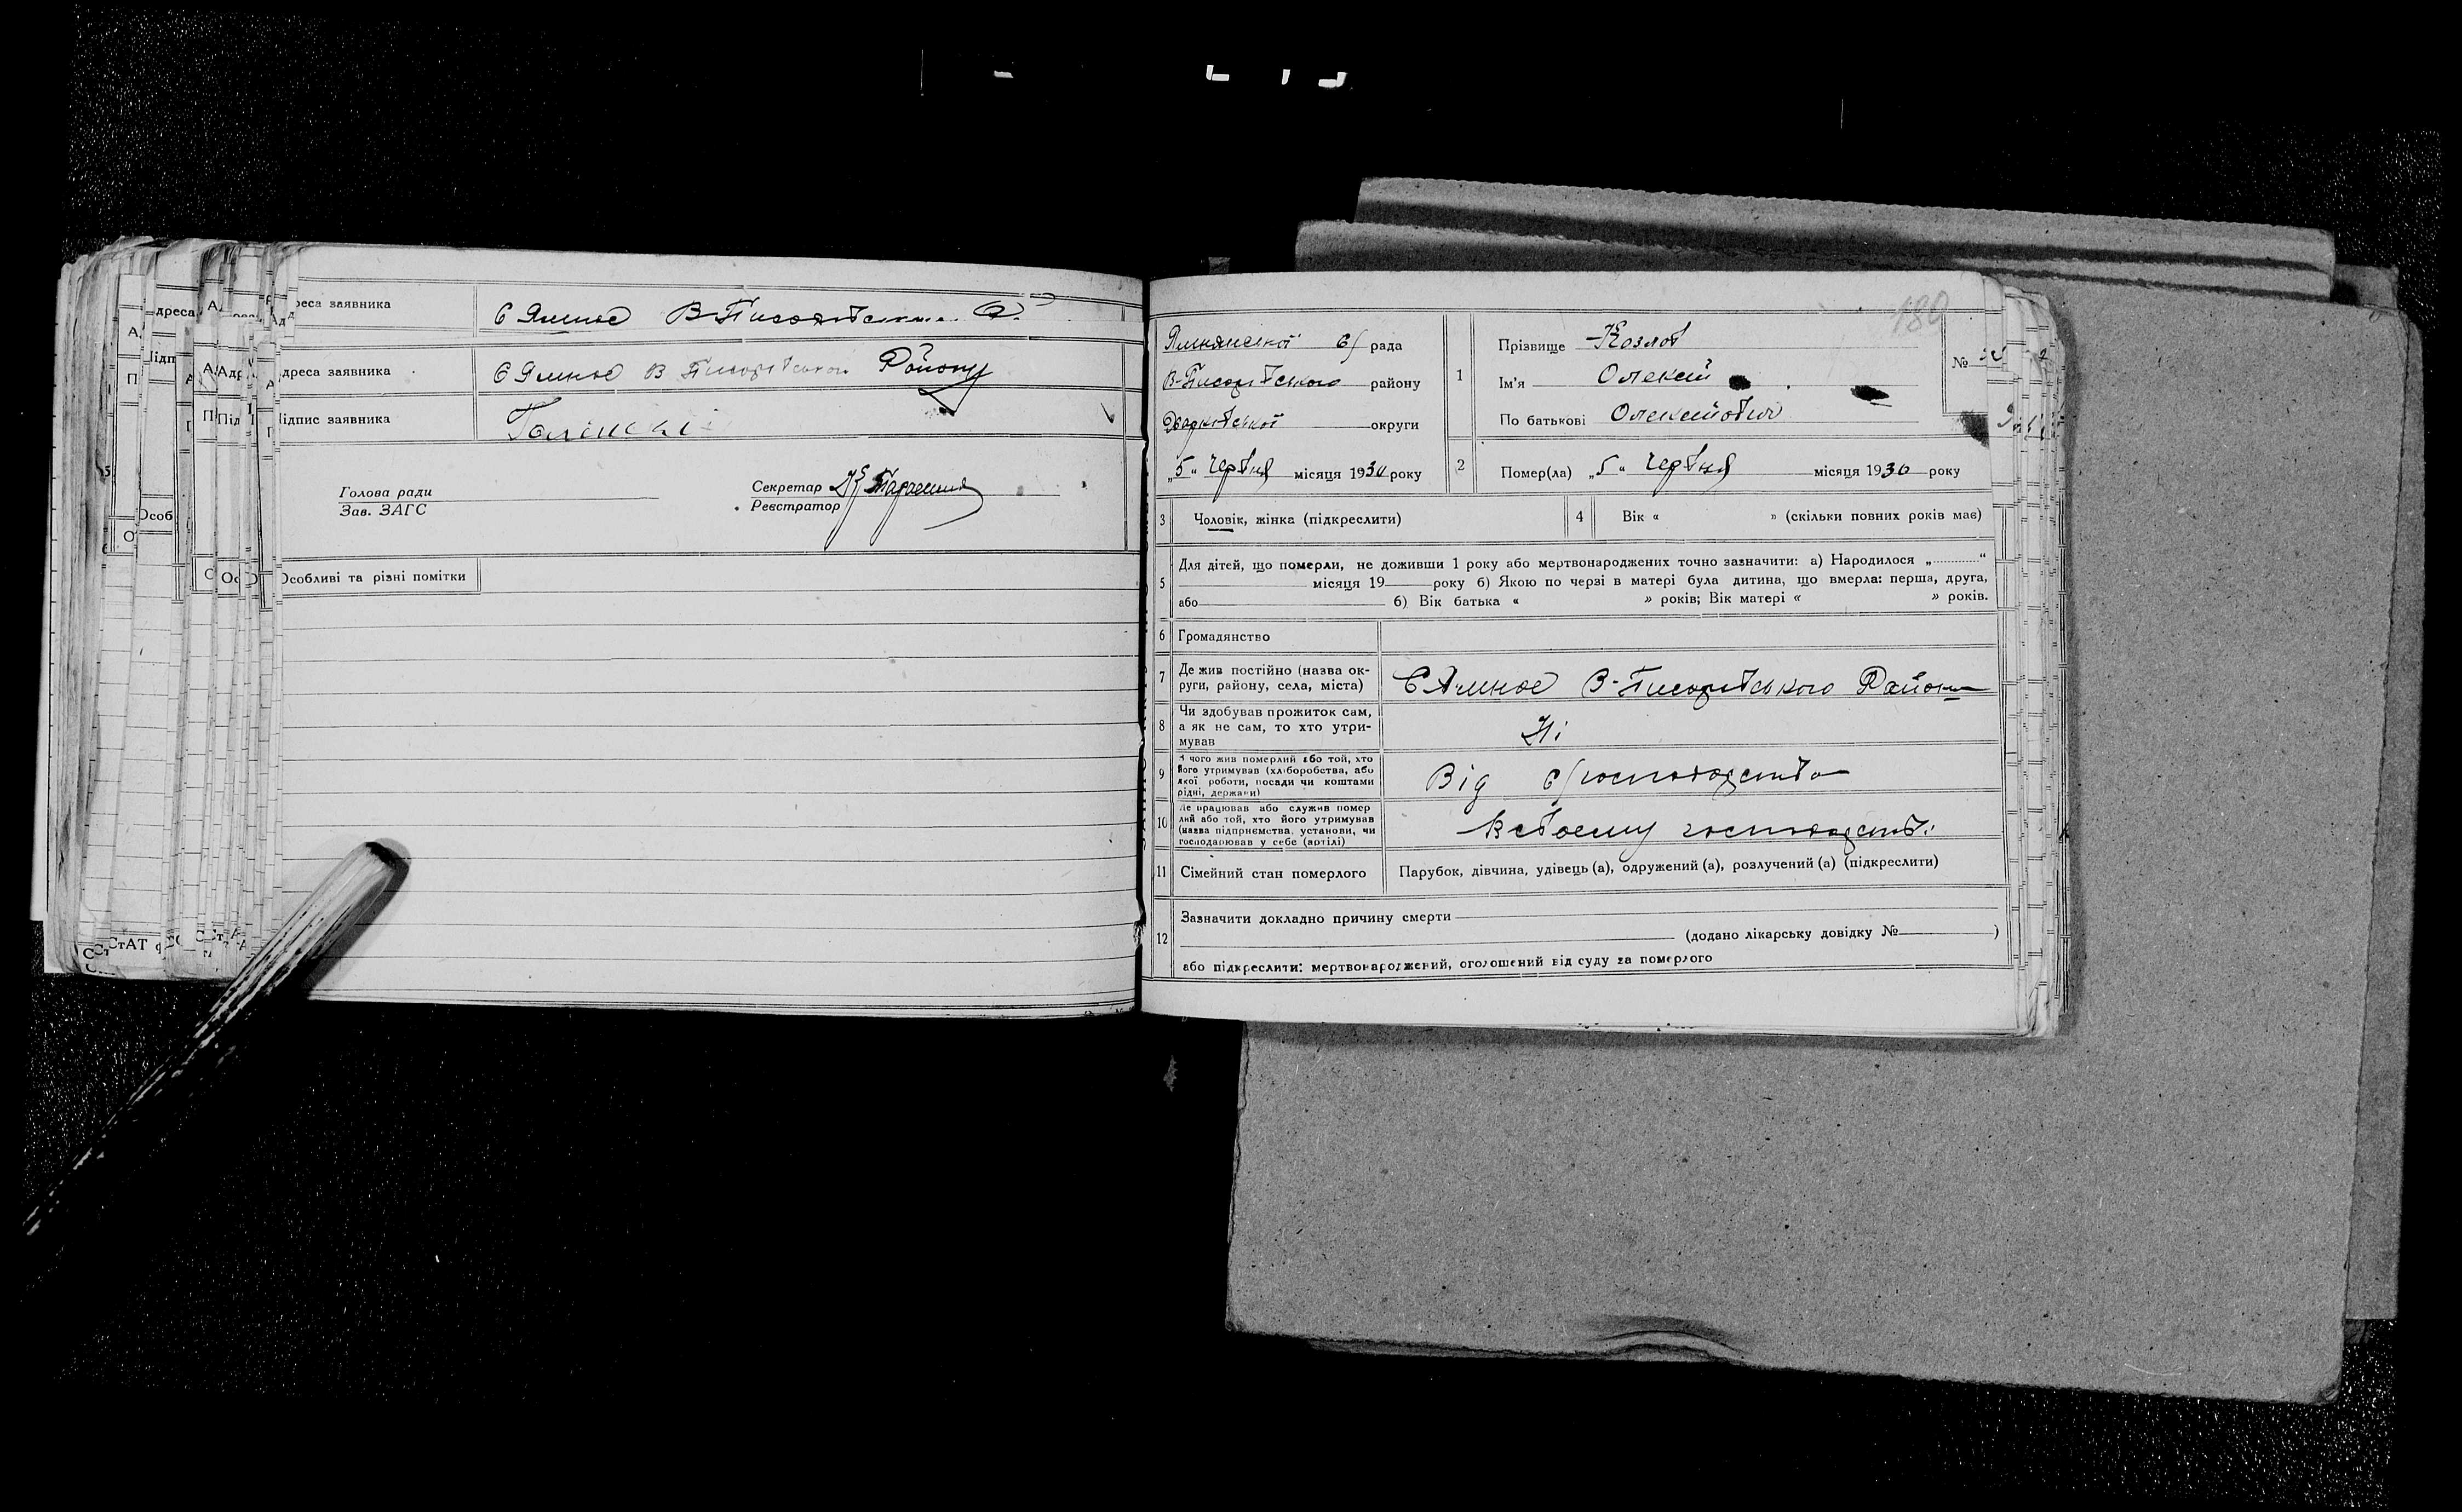 Адреса заявника С Ямное В-Писарівськ.
Адреса заявника С Ямное В Писарівського Району
Підпис заявника
Голова ради
Зав. ЗАГС
Секретар
Реєстратор
Особливі та різні помітки
180
Ямнянської с/ рада
В-Писарівського району
Харківської округи
„5“ Червня місяця 1930 року
1
Прізвище Козлов
Ім'я Олексій
По батькові Олексійович
№
2
Помер(ла) „5“ Червня місяця 1930 року
3 Чоловік, жінка (підкреслити)
4 Вік « » (скільки повних років має)
5 Для дітей, що померли, не доживши 1 року або мертвонароджених точно зазначити: а) Народилося „ “
місяця 19 року б) Якою по черзі в матері була дитина, що вмерла: перша, друга,
або б) Вік батька « » років; Вік матері « » років.
6 Громадянство
7 Де жив постійно (назва ок-
руги, району, села, міста) С Ямное В-Писарівського Району
8 Чи здобував прожиток сам,
а як не сам, то хто утри-
мував Ні
9 З чого жив померлий або той, хто
його утримував (хліборобства, або
якої роботи, посади чи коштами
рідні, держави) Від с/господарства
10 Де працював або служив помер
лий або той, хто його утримував
(назва підприємства, установи, чи
господарював у себе (артілі) В своему господарстві
11 Сімейний стан померлого Парубок, дівчина, удівець (а), одружений (а), розлучений (а) (підкреслити)
12 Зазначити докладно причину смерти
(додано лікарську довідку № )
або підкреслити: мертвонароджений, оголошений від суду за померлого